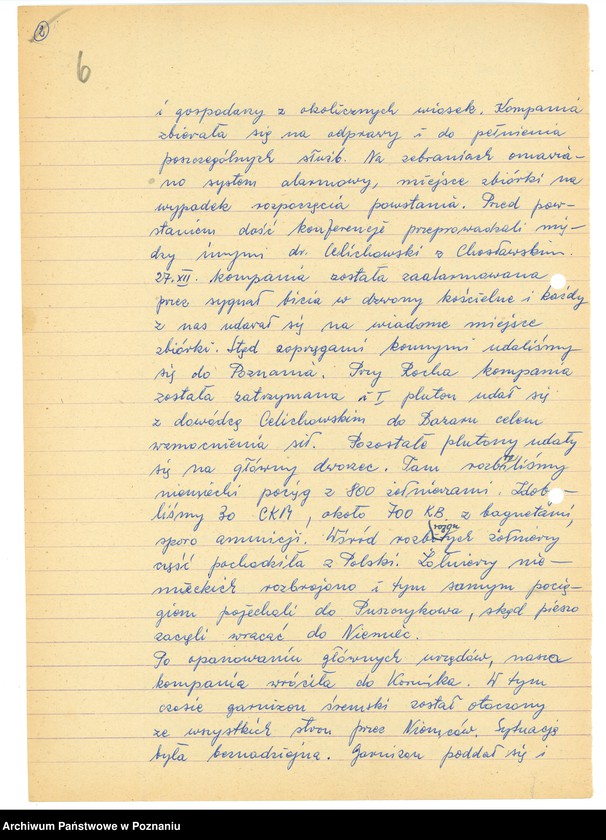 2
6
i gospodarzy z okolicznych wiosek. Kompania
zbierała się na odprawy i do pełnienia
poszczególnych służb. Na zebraniach omawia-
no system alarmowy, miejsce zbiórki na
wypadek rozpoczęcia powstania. Przed pow-
staniem dość konferencje przeprowadzali mię-
dzy innymi dr. Celichowski z Chosławskim.
27.XII. kompania została zaalarmowana
przez sygnał bicia w dzwony kościelne i każdy
z nas udawał się na wiadome miejsce
zbiórki. Stąd zaprzęgami konnymi udaliśmy
się do Poznania. Przy Rocha kompania
została zatrzymana i I pluton udał się
z dowódcą Celichowskim do Bazaru celem
wzmocnienia sił. Pozostałe plutony udały
się na główny dworzec. Tam rozbiliśmy
niemiecki pociąg z 800 żołnierzami. Zdoby-
liśmy 30 CKM, około 700 KB z bagnetami,
sporo amunicji. Wśród rozbitych żołnierzy
część pochodziła z Polski. Żołnierzy nie-
mieckich rozbrojono i tym samym pocią-
giem pojechali do Puszczykowa, skąd pieszo
zaczęli wracać do Niemiec.
Po opanowaniu głównych urzędów, nasza
kompania wróciła do Kórnika. W tym
czasie garnizon śremski został otoczony
ze wszystkich stron przez Niemców. Sytuacja
była beznadziejna. Garnizon poddał się i
Archiwum Państwowe w Poznaniu